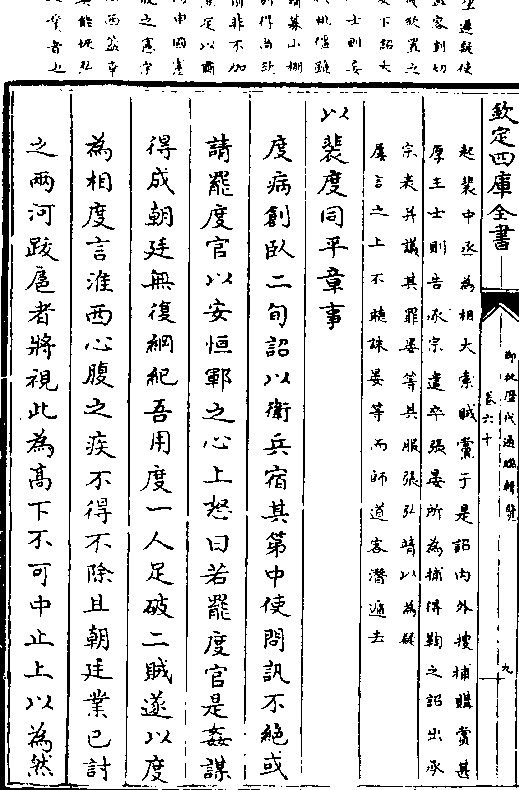 欽定四庫全書
御批歷代通鑑輯覽
卷六十
九
起裴中丞為相大索賊黨于是詔內外搜捕購賞甚
厚王士則告承宗遣卒張晏所為捕得鞫之詔出承
宗表并議其罪晏等具服張弘靖以為疑
屢言之上不聽誅晏等而師道客潛遁去
以裴度同平章事
度病創臥二旬詔以衛兵宿其第中使問訊不絕或
請罷度官以安恒鄆之心上怒曰若罷度官是姦謀
得成朝廷無復綱紀吾用度一人足破二賊遂以度
為相度言淮西心腹之疾不得不除且朝廷業已討
之兩河跋扈者將視此為高下不可中止上以為然